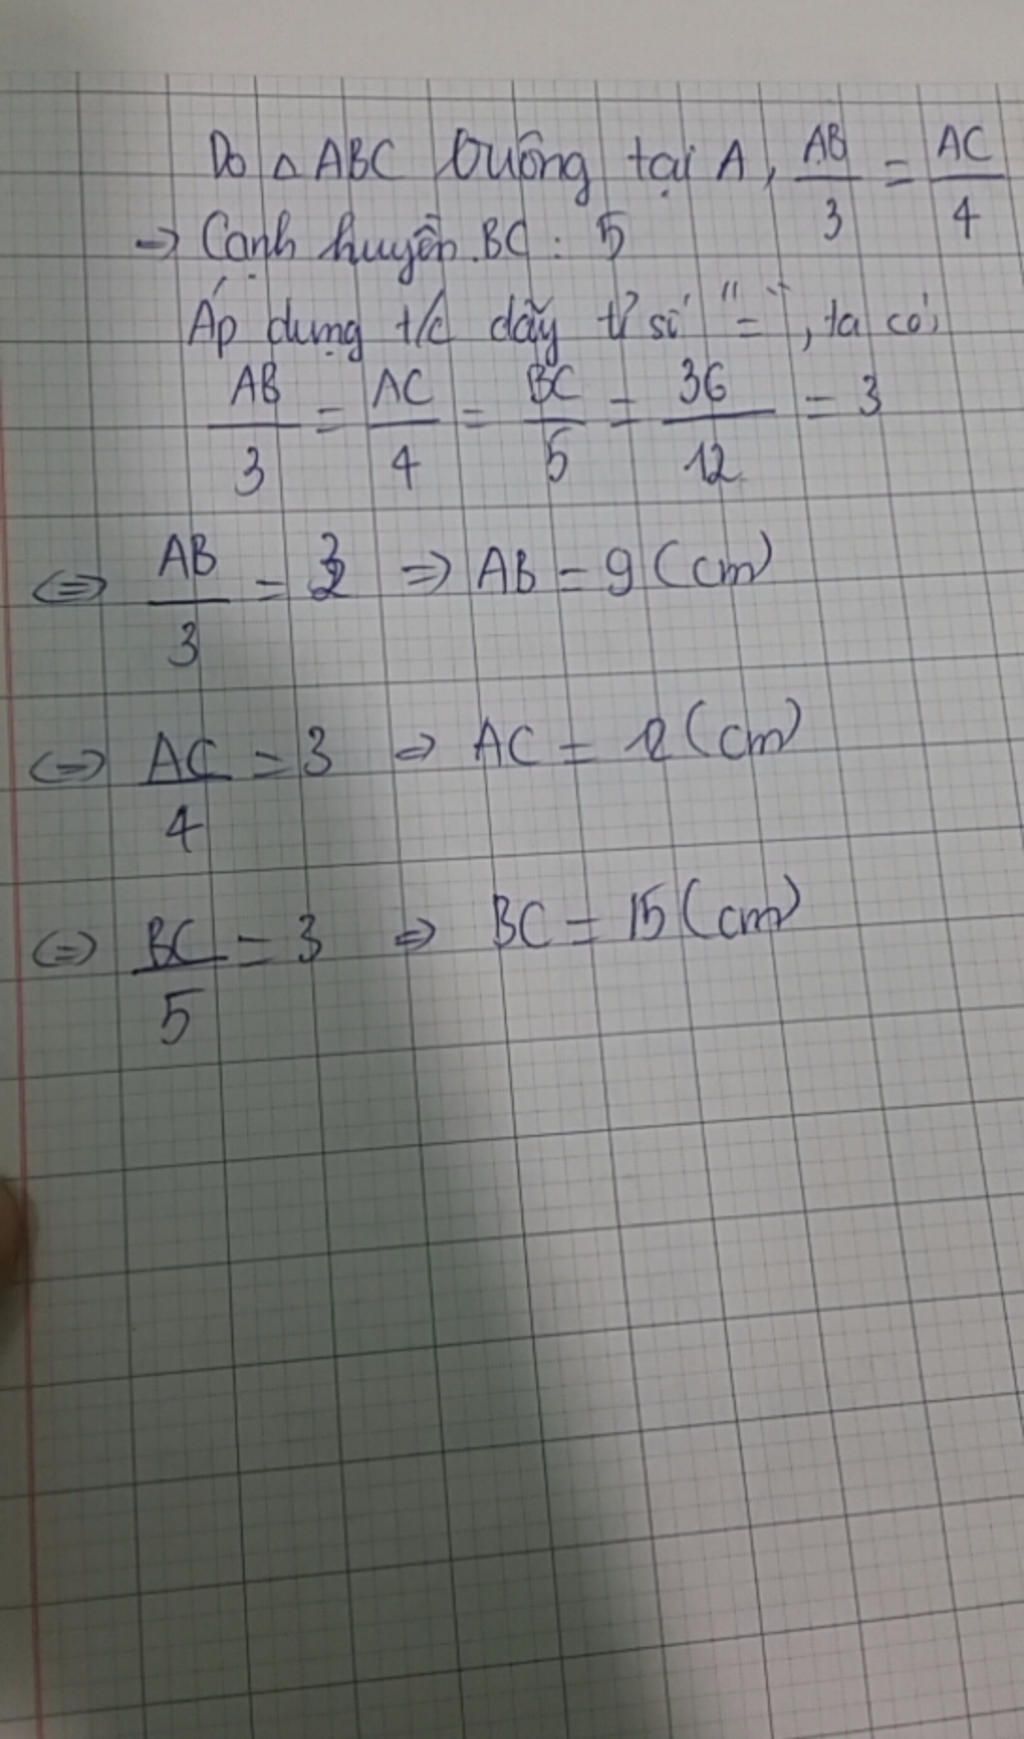 Do △ABC vuông tại A, AB/3 = AC/4
→ Cạnh huyền BC: 5
Áp dụng t/c dãy tỉ số "=", ta có,
AB/3 = AC/4 = BC/5 = 36/12 = 3
⇔ AB/3 = 3 ⇒ AB = 9 (cm)
⇔ AC/4 = 3 ⇒ AC = 12 (cm)
⇔ BC/5 = 3 ⇒ BC = 15 (cm)